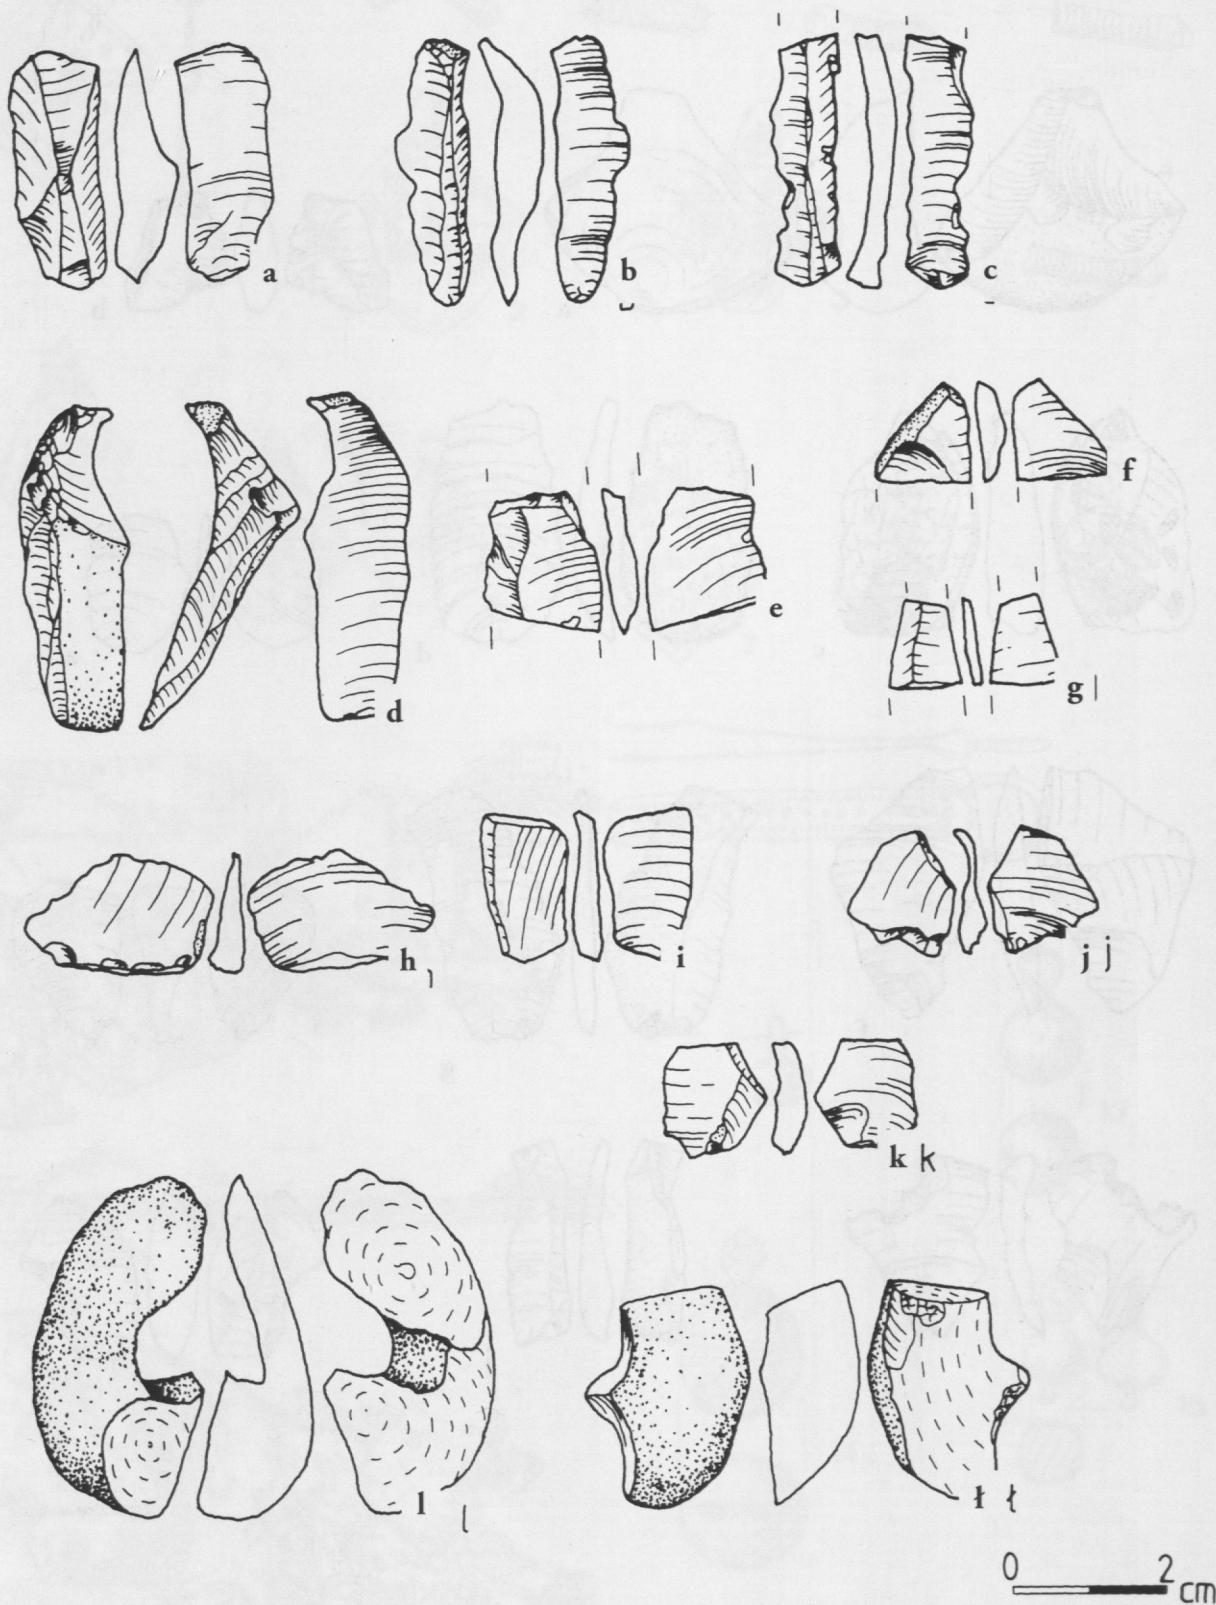 a
b
c
d
e
f
g
h
i
j j
k k
l l
ł ł
0 2 cm